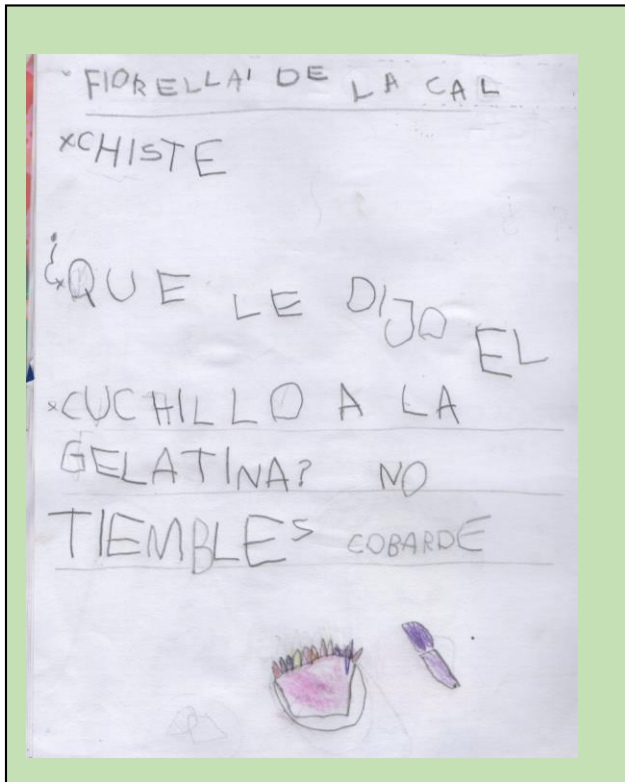 FIORELLA DE LA CAL
xCHISTE
¿QUE LE DIJO EL
xCUCHILLO A LA
GELATINA? NO
TIEMBLES COBARDE